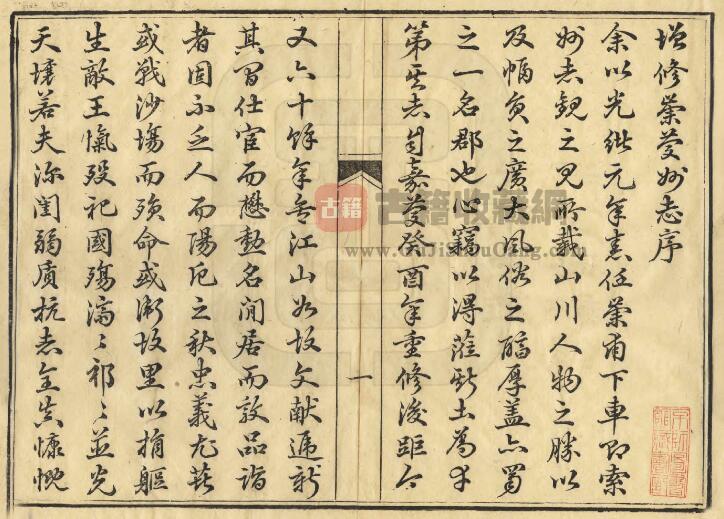 增修崇慶州志序
余以光緒元年任崇甫下車即索
州志觀之見所載山川人物之勝以
及幅員之廣大風俗之醕厚蓋亦蜀
之一名郡也心竊以得蒞斯土為幸
第其志自嘉慶癸酉年重修後距今
一
又六十餘年矣江山如故文獻遞新
其間仕宦而懋勳名閒居而敦品詣
者固不乏人而陽厄之秋忠義尤甚
或戰沙場而殞命或衛故里以捐軀
生敵王愾歿祀國殤濟〻祁〻並光
天壤若夫深閨弱质抗志全貞慷慨
古籍
古籍收藏網
www.GuJiShouCang.com